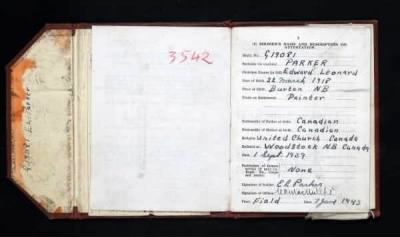 G19081 E.L. Parker
3542
1
(I) SOLDIER'S NAME and DESCRIPTION ON ATTESTATION.
Army No. G19081
Surname (in capitals) PARKER
Christian Names (in full) Edward Leonard
Date of Birth 22 March 1918
Place of Birth Burton NB
Trade on Enlistment Painter
Nationality of Father at Birth Canadian
Nationality of Mother at Birth Canadian
Religion United Church Canada
Enlisted at Woodstock N.B. Canada
On 1 Sept. 1939
None
Signature of Soldier E.L. Parker
Signature of Officer
Place Field Date 7 June 1943